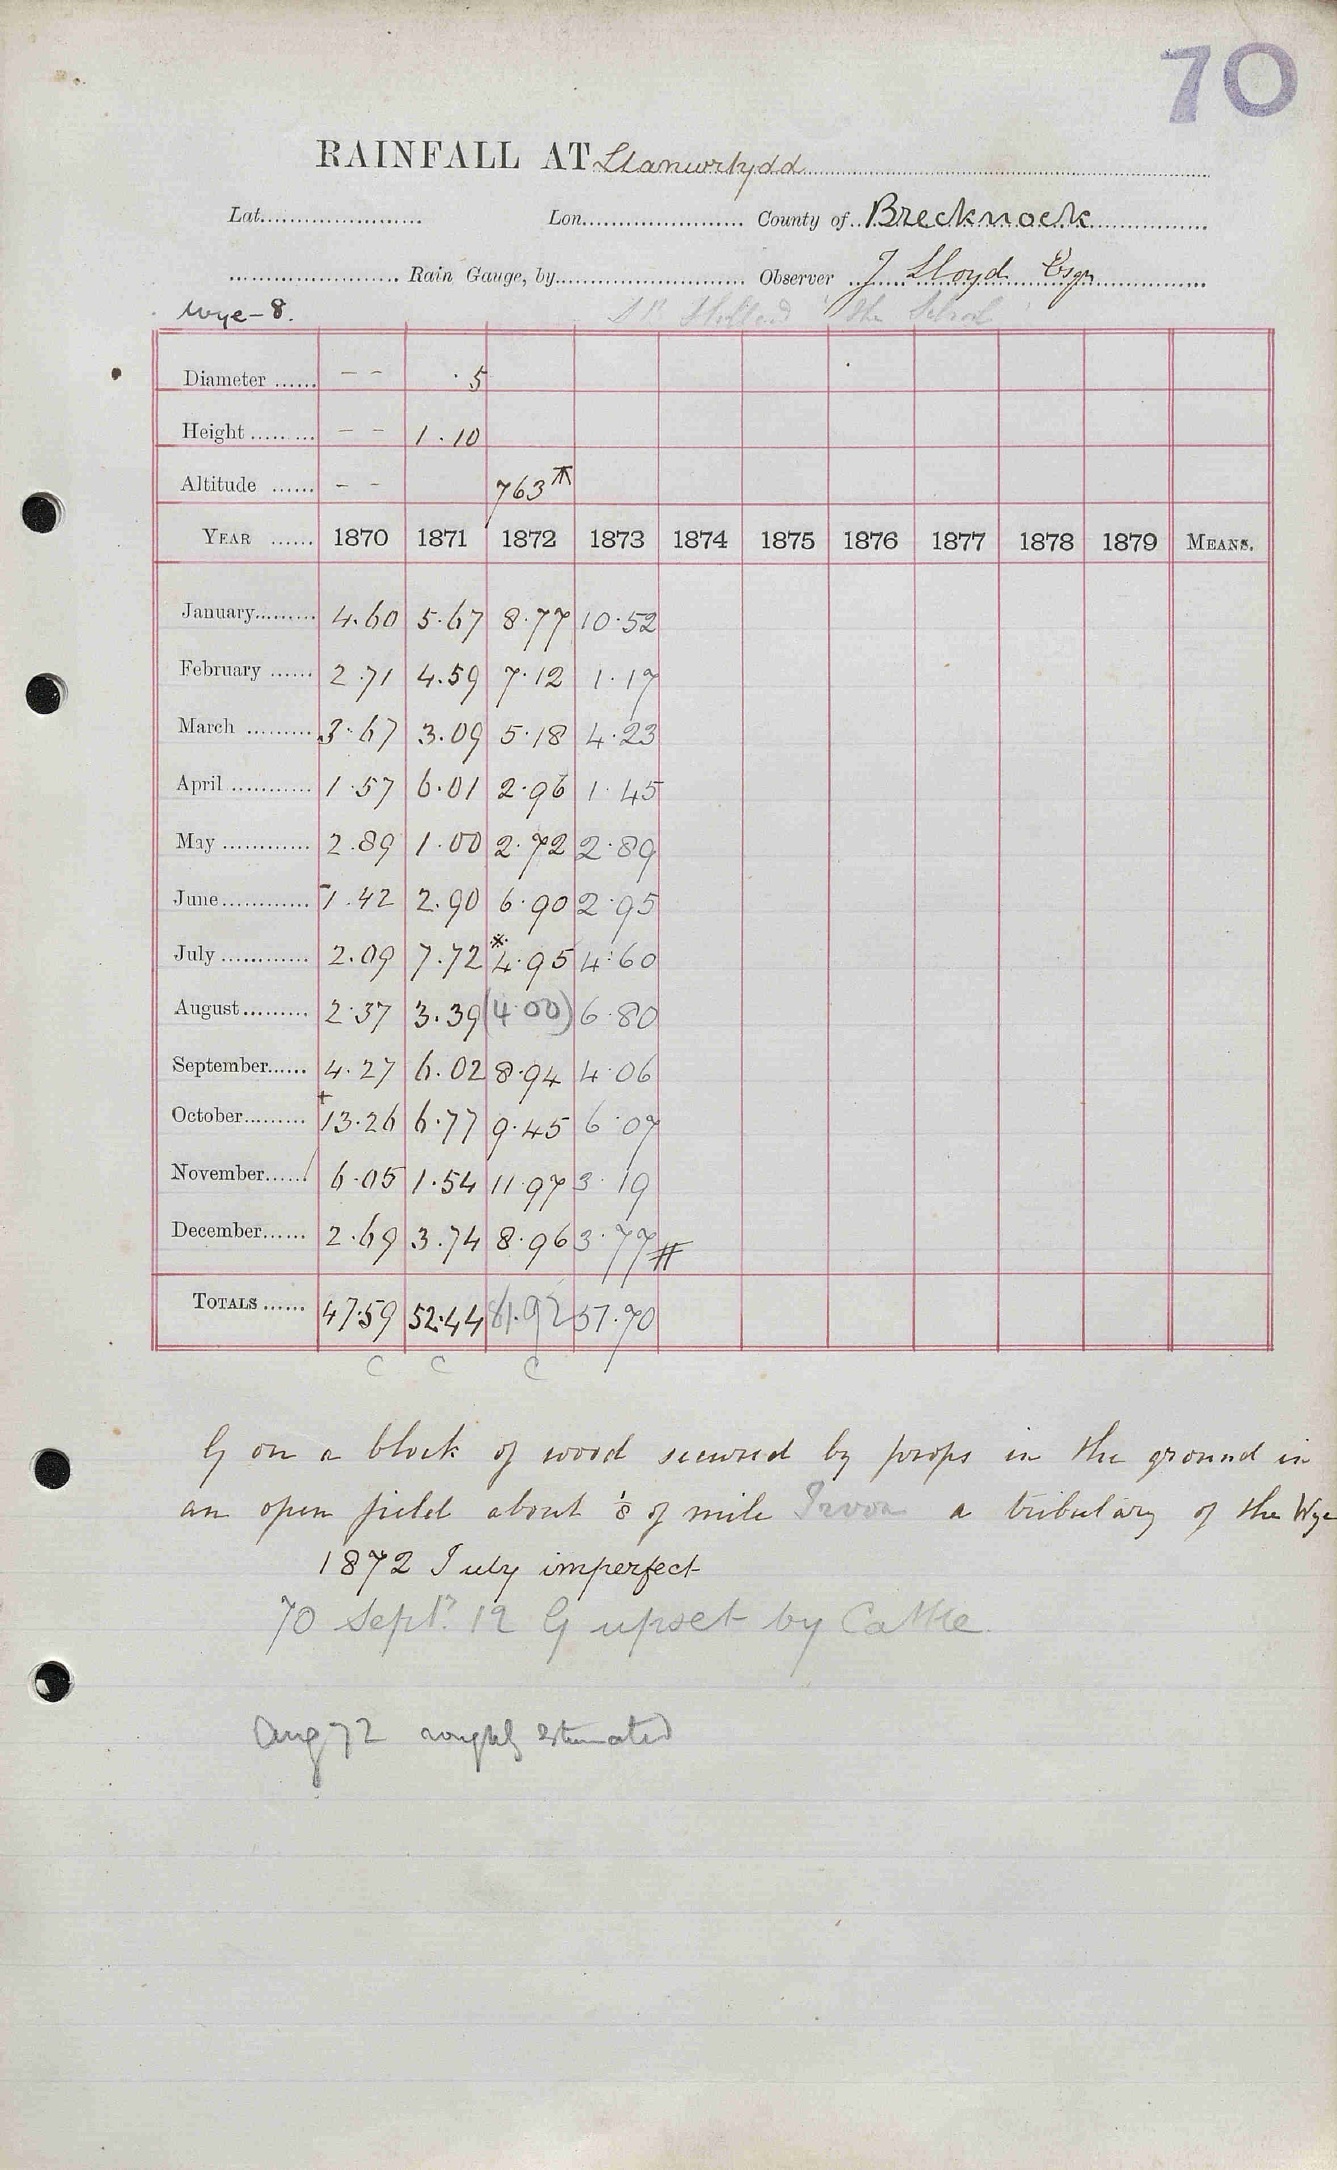 70
RAINFALL AT Llanwrtydd
Lat. Lon. County of Brecknock
Rain Gauge, by Observer J. Lloyd Esqr
Wye-8. the School
Diameter - - .5
Height - - 1.10
Altitude - - 763
YEAR 1870 1871 1872 1873 1874 1875 1876 1877 1878 1879 MEANS.
January 4.60 5.67 8.77 10.52
February 2.71 4.59 7.12 1.17
March 3.67 3.09 5.18 4.23
April 1.57 6.01 2.96 1.45
May 2.89 1.00 2.72 2.89
June 1.42 2.90 6.90 2.95
July 2.09 7.72 *4.95 4.60
August 2.37 3.39 (4.00) 6.80
September 4.27 6.02 8.94 4.06
October +13.26 6.77 9.45 6.07
November 6.05 1.54 11.97 3.19
December 2.69 3.74 8.96 3.77 #
TOTALS 47.59 52.44 81.92 51.70
C C C
G on a block of wood secured by props in the ground in
an open field about 1/8 of mile Irvon a tributary of the Wye
1872 July imperfect
70 Septr. 12 G upset by Cattle.
Aug 72 roughly estimated